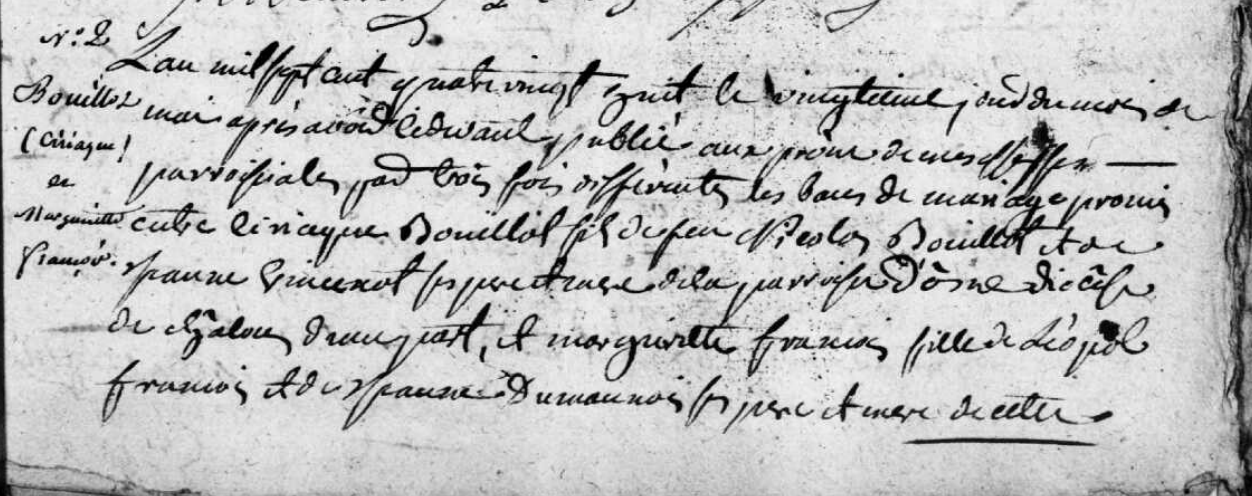 N.º 2
Bouillot
(Ciriaque)
et
Marguerite
françois.
L'an mil sept cent quatre vingt huit le vingtieme jour du mois de
mai après avoir cidevant publié aux prône de mes messes
parroissiales par trois fois differentes les bans de mariage promis
entre Ciriaque Bouillot fils de feu Nicolas Bouillot et de
jeanne Vincenot ses pere et mere de la parroisse d'ône diocèse
de châlon d'une part, et margueritte francois fille de Léopol
francois et de jeanne Dumannois ses pere et mere de cette